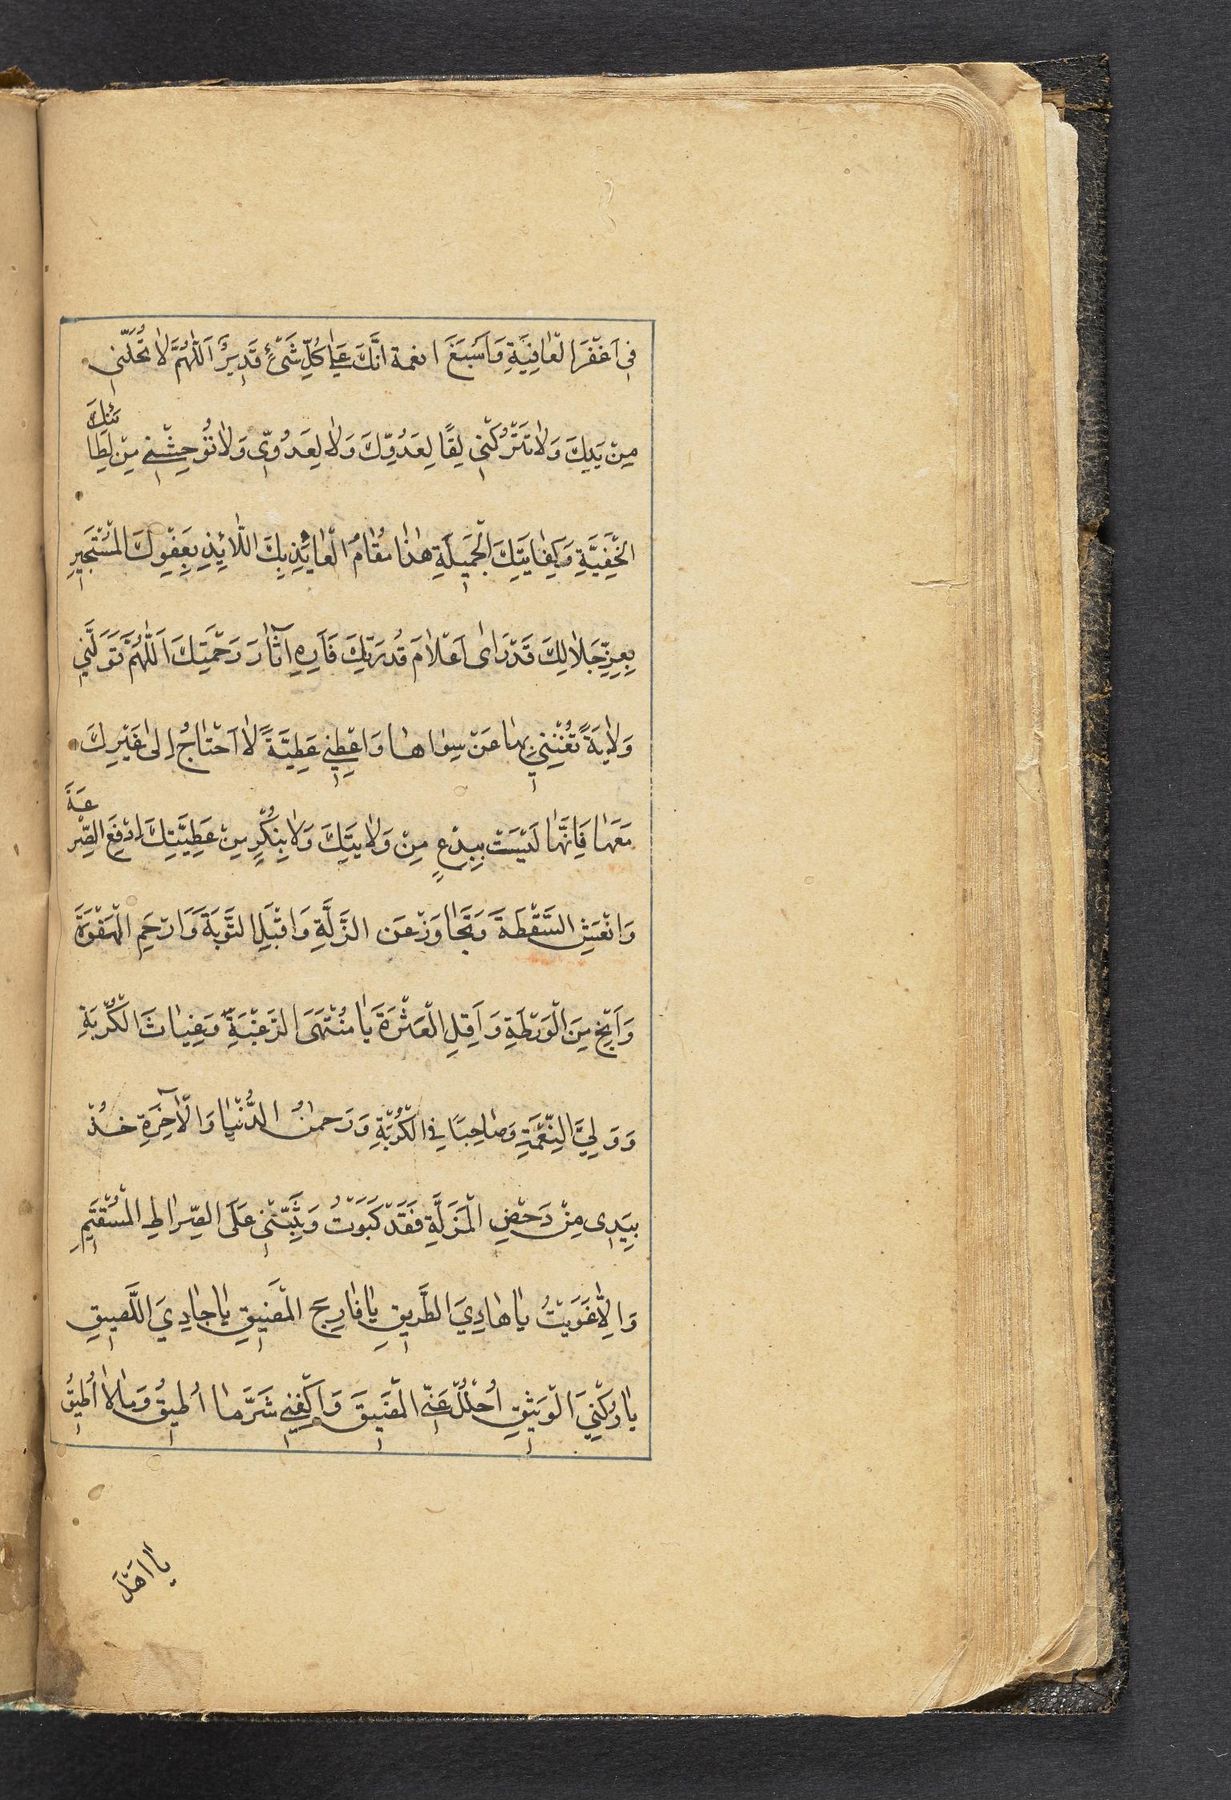 فِي اَغْفَرِ الْعٰافِيَةِ وَاَسْبَغَ انعمة انَّكَ عَلٰي كُلِّ شَيْءٍ قَدِيرٌ اَللّٰهُمَّ لاٰ تُخَلِّنِي
مِنْ يَدِكَ وَلاٰ تَتْرُكْنِي لِقًا لِعَدُوِّكَ وَلاٰ لِعَدُوِّي وَلاٰ تُوحِشْنِي مِنْ لَطٰائِفِكَ
الْخَفِيَّةِ وَكِفٰايَتِكَ الْجَمِيلَةِ هٰذٰا مَقٰامُ الْعٰايِذِ بِكَ اللّٰائِذِ بِعَفْوِكَ الْمُسْتَجِيرِ
بِعِزِّ جَلاٰلِكَ قَدْ رَاىٰ اَعْلاٰمَ قُدْرَتِكَ فَاَرِهِ آثٰارَ رَحْمَتِكَ اَللّٰهُمَّ تَوَلَّنِي
وَلاٰيَةً تُغْنِنِي بِهٰا عَنْ سِوٰاهٰا وَاعْطِنِي عَطِيَّةً لاٰ اَحْتٰاجُ اِلىٰ غَيْرِكَ
مَعَهٰا فَاِنَّهٰا لَيْسَتْ بِبِدْعٍ مِنْ وَلاٰيَتِكَ وَلاٰ بِنُكْرٍ مِنْ عَطِيَّتِكَ اِدْفَعِ الصِّرْعَةَ
وَانْعَشِ السَّقْطَةَ وَتَجٰاوَزْ عَنِ الزَّلَّةِ وَاقْبَلِ التَّوْبَةَ وَارْحَمِ الْهَفْوَةَ
وَاَنْجِ مِنَ الْوَرْطَةِ وَاَقِلِ الْعَثْرَةَ يٰا مُنْتَهَى الرَّغْبَةِ وَغِيٰاثَ الْكُرْبَةِ
وَوَلِيَّ النِّعْمَةِ وَصٰاحِبًا فِي الْكُرْبَةِ وَرَحمٰنُ الدُّنْيٰا وَالْآخِرَةِ خُذْ
بِيَدِى مِنْ دَحْضِ الْمَزَلَّةِ فَقَدْ كَبَوْتُ وَثَبِّتْنِي عَلَى الصِّرٰاطِ الْمُسْتَقِيمِ
وَاِلاّٰ غَوَيْتُ يٰا هٰادِيَ الطَّرِيقِ يٰا فٰارِجَ الْمَضِيقِ يٰا جٰادِيَ اللَّصِيقِ
يٰا رُكْنِيَ الْوَثِيقِ اُحْلُلْ عَنِّي الْمَضِيقَ وَاكْفِنِي شَرَّ مٰا اُطِيقُ وَمٰا لاٰ اُطِيقُ
يٰا اَهْلَ